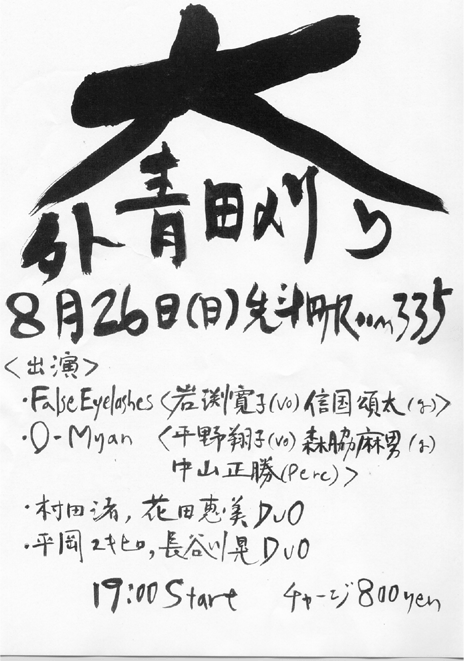 大
外青田刈り
8月26日(日)先斗町Room335
<出演>
・False Eyelashes <岩渕寛子(vo) 信国頌太(g)>
・O-Myan <平野翔子(vo) 森脇麻男(g)
中山正勝(Perc)>
・村田渚, 花田恵美 DUO
・平岡ユキヒロ, 長谷川晃 DUO
19:00 Start チャージ800yen